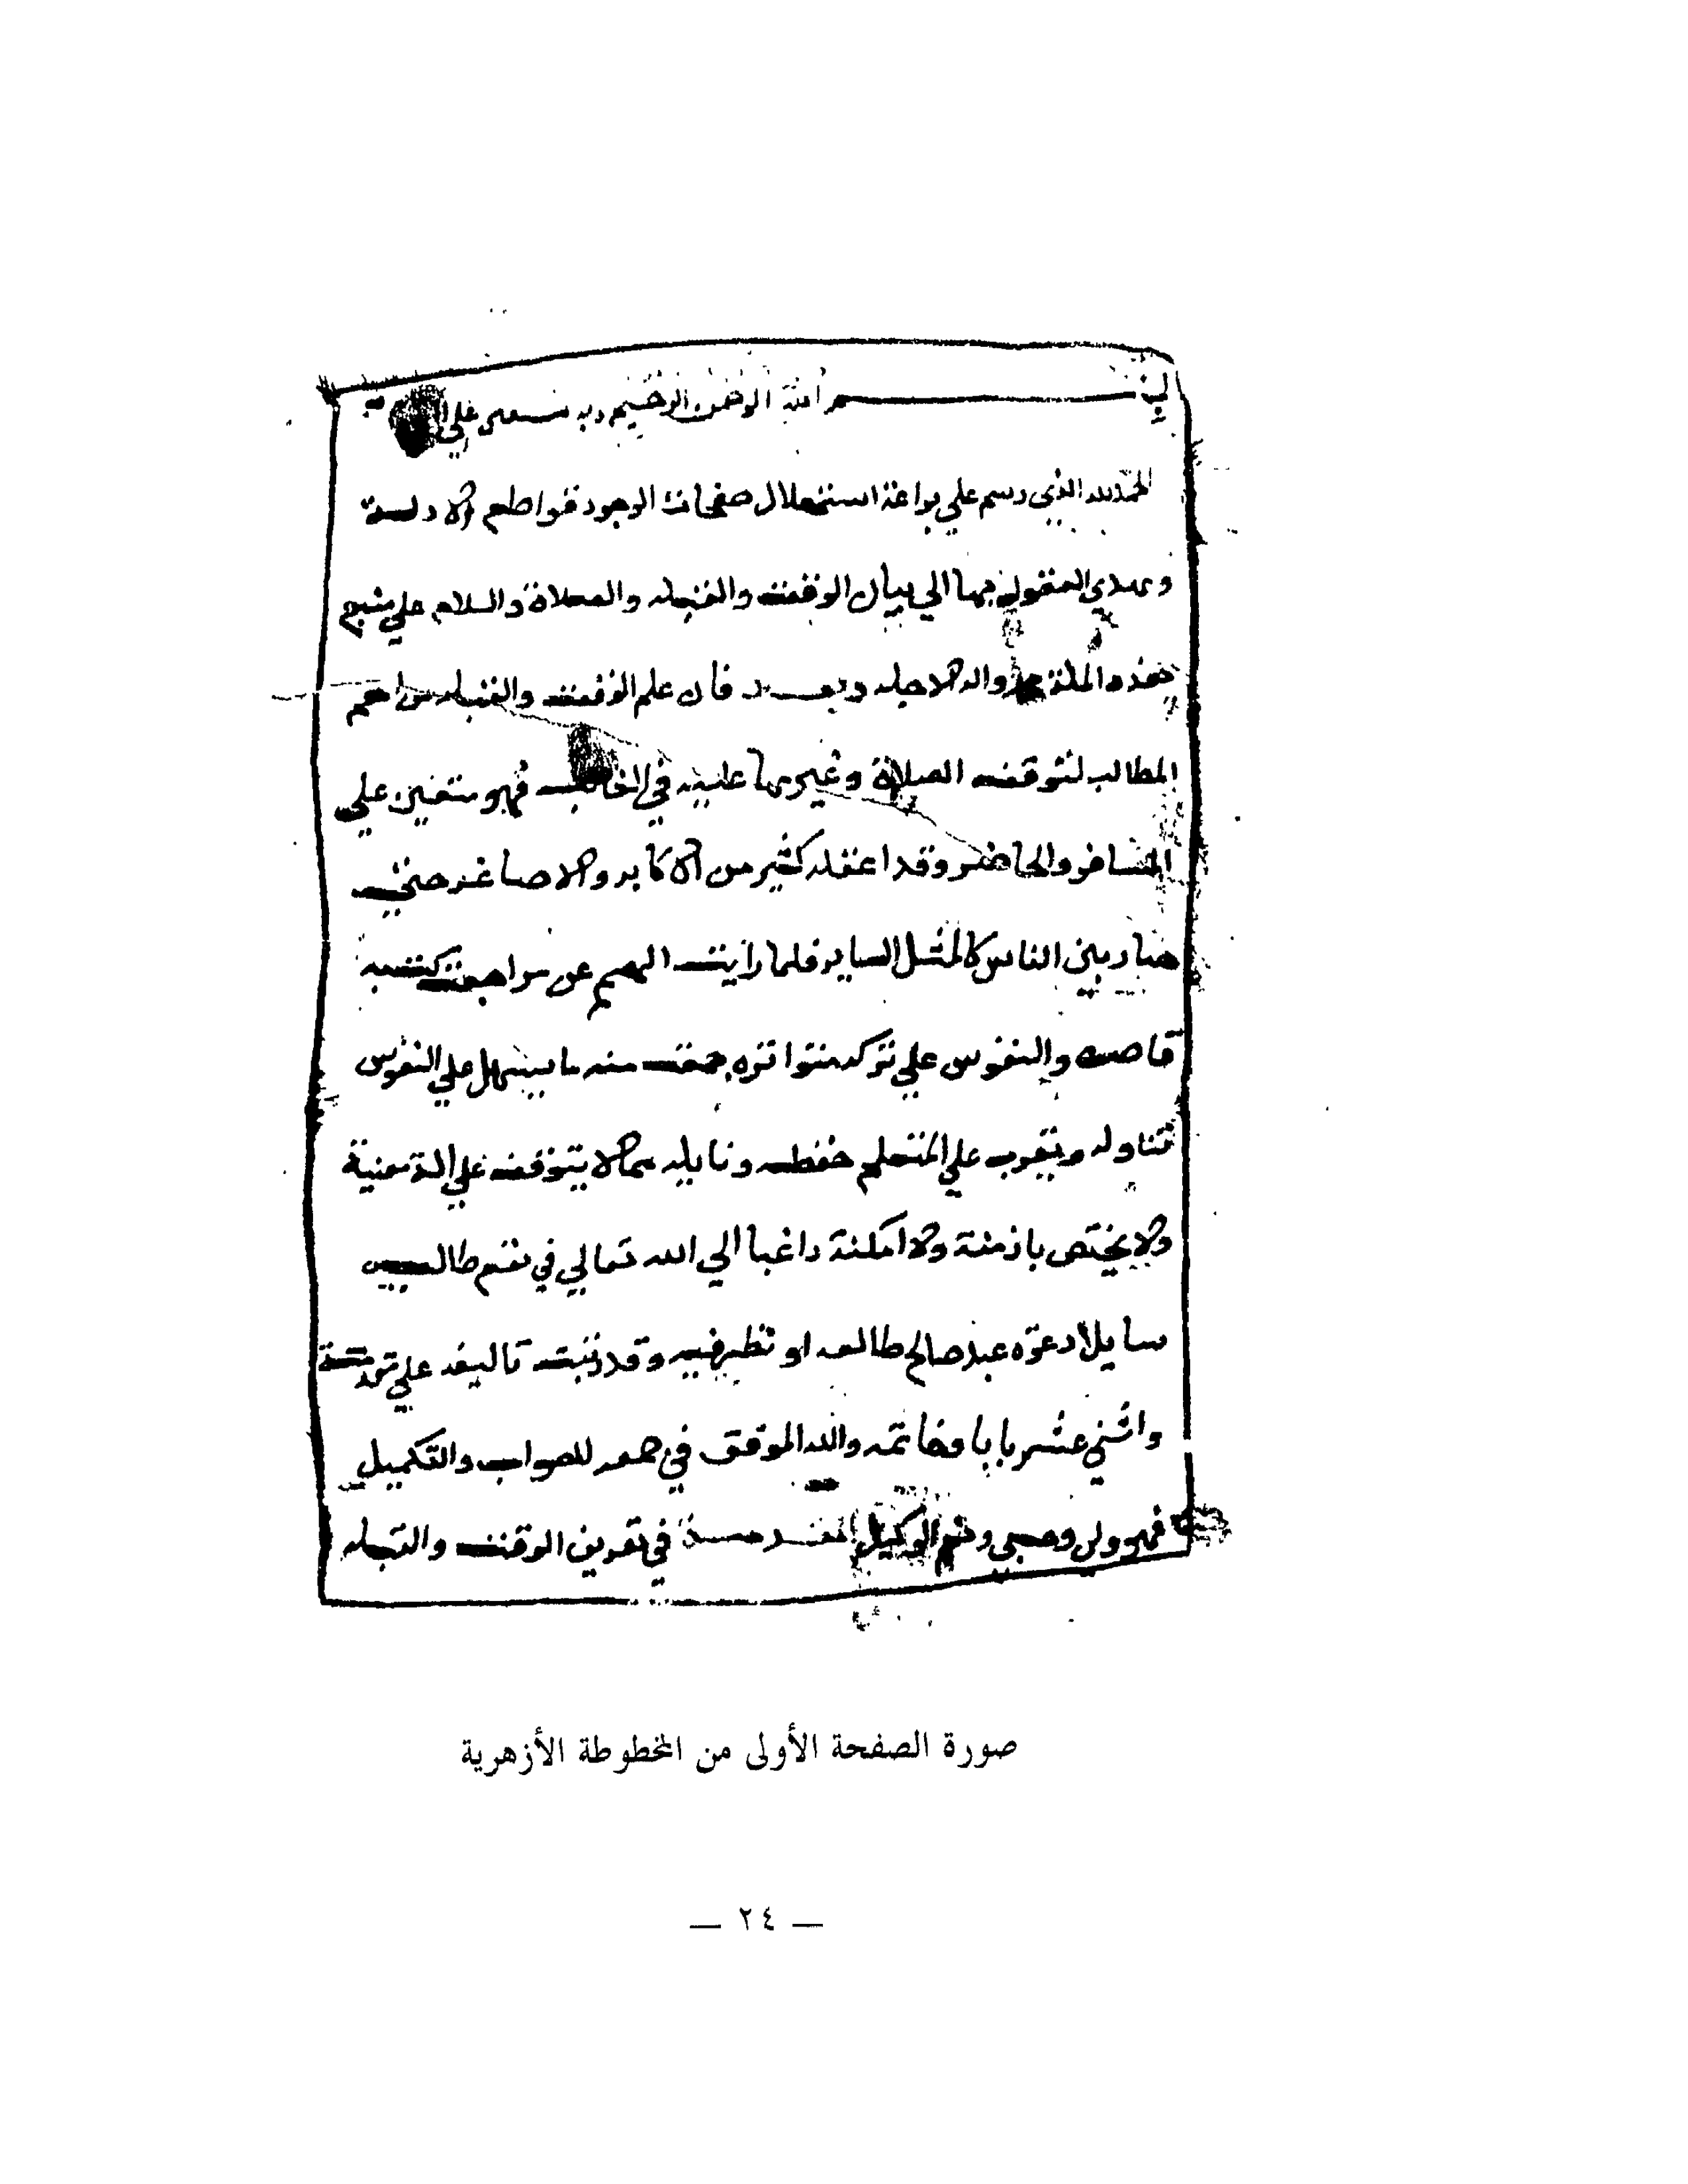 بسم الله الرحمن الرحيم وبه نستعين علي
الحمد لله الذي رسم علي براعة استهلال صفحات الوجود قواطع الادلة
وهدي العقول بها الي بيان الوقت والقبلة والصلاة والسلام علي متبع
هذه الملة محمد واله الاجله وبعد فان علم الوقت والقبله من اهم
المطالب لتوقف الصلاة وغيرها عليه في الغالب فهو متعين علي
المسافر والحاضر وقد اغفله كثير من الاكابر والاصاغر حتي
صار بين الناس كالمثل الساير فلما رايت الهمم عن مراجعة كتبه
قاصره والنفوس علي تركه متواتره جمعت منه ما يسهل علي النفوس
تناوله ويقرب علي المتعلم حفظه ونايله مما لا يتوقف علي الة معنية
ولا يختص بازمنة ولا امكنة راغبا الي الله تعالي في نفع طالبيه
سايلا دعوه عبد صالح طالعه او نظر فيه وقد رتبت تاليفه علي مقدمة
واثني عشر بابا وخاتمه والله الموفق في جمعه للصواب والتكميل
فهو ولي وحسبي ونعم الوكيل المقدمة في تعريف الوقت والقبله
صورة الصفحة الأولى من المخطوطة الأزهرية
— ٢٤ —